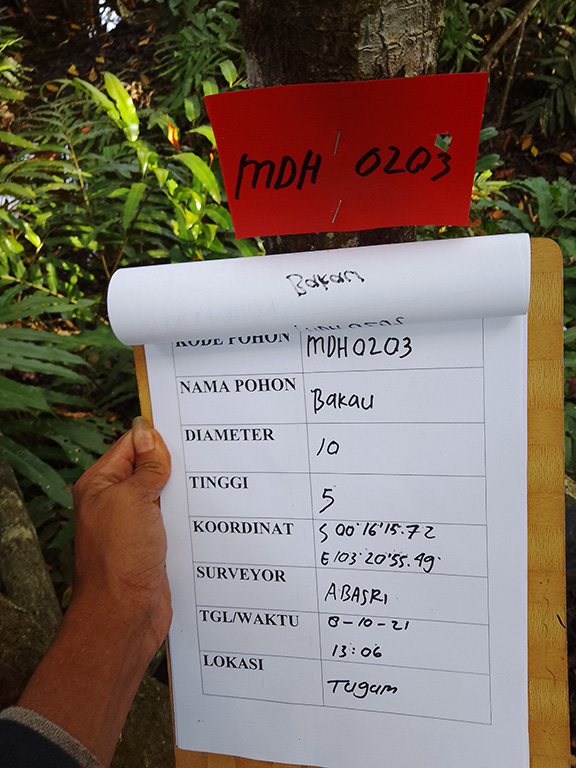 MDH 0203
Bakau
KODE POHON MDH0203
NAMA POHON Bakau
DIAMETER 10
TINGGI 5
KOORDINAT S 00°16'15.72
E103°20'55.49
SURVEYOR ABASRI
TGL/WAKTU 8-10-21
13:06
LOKASI Tugam